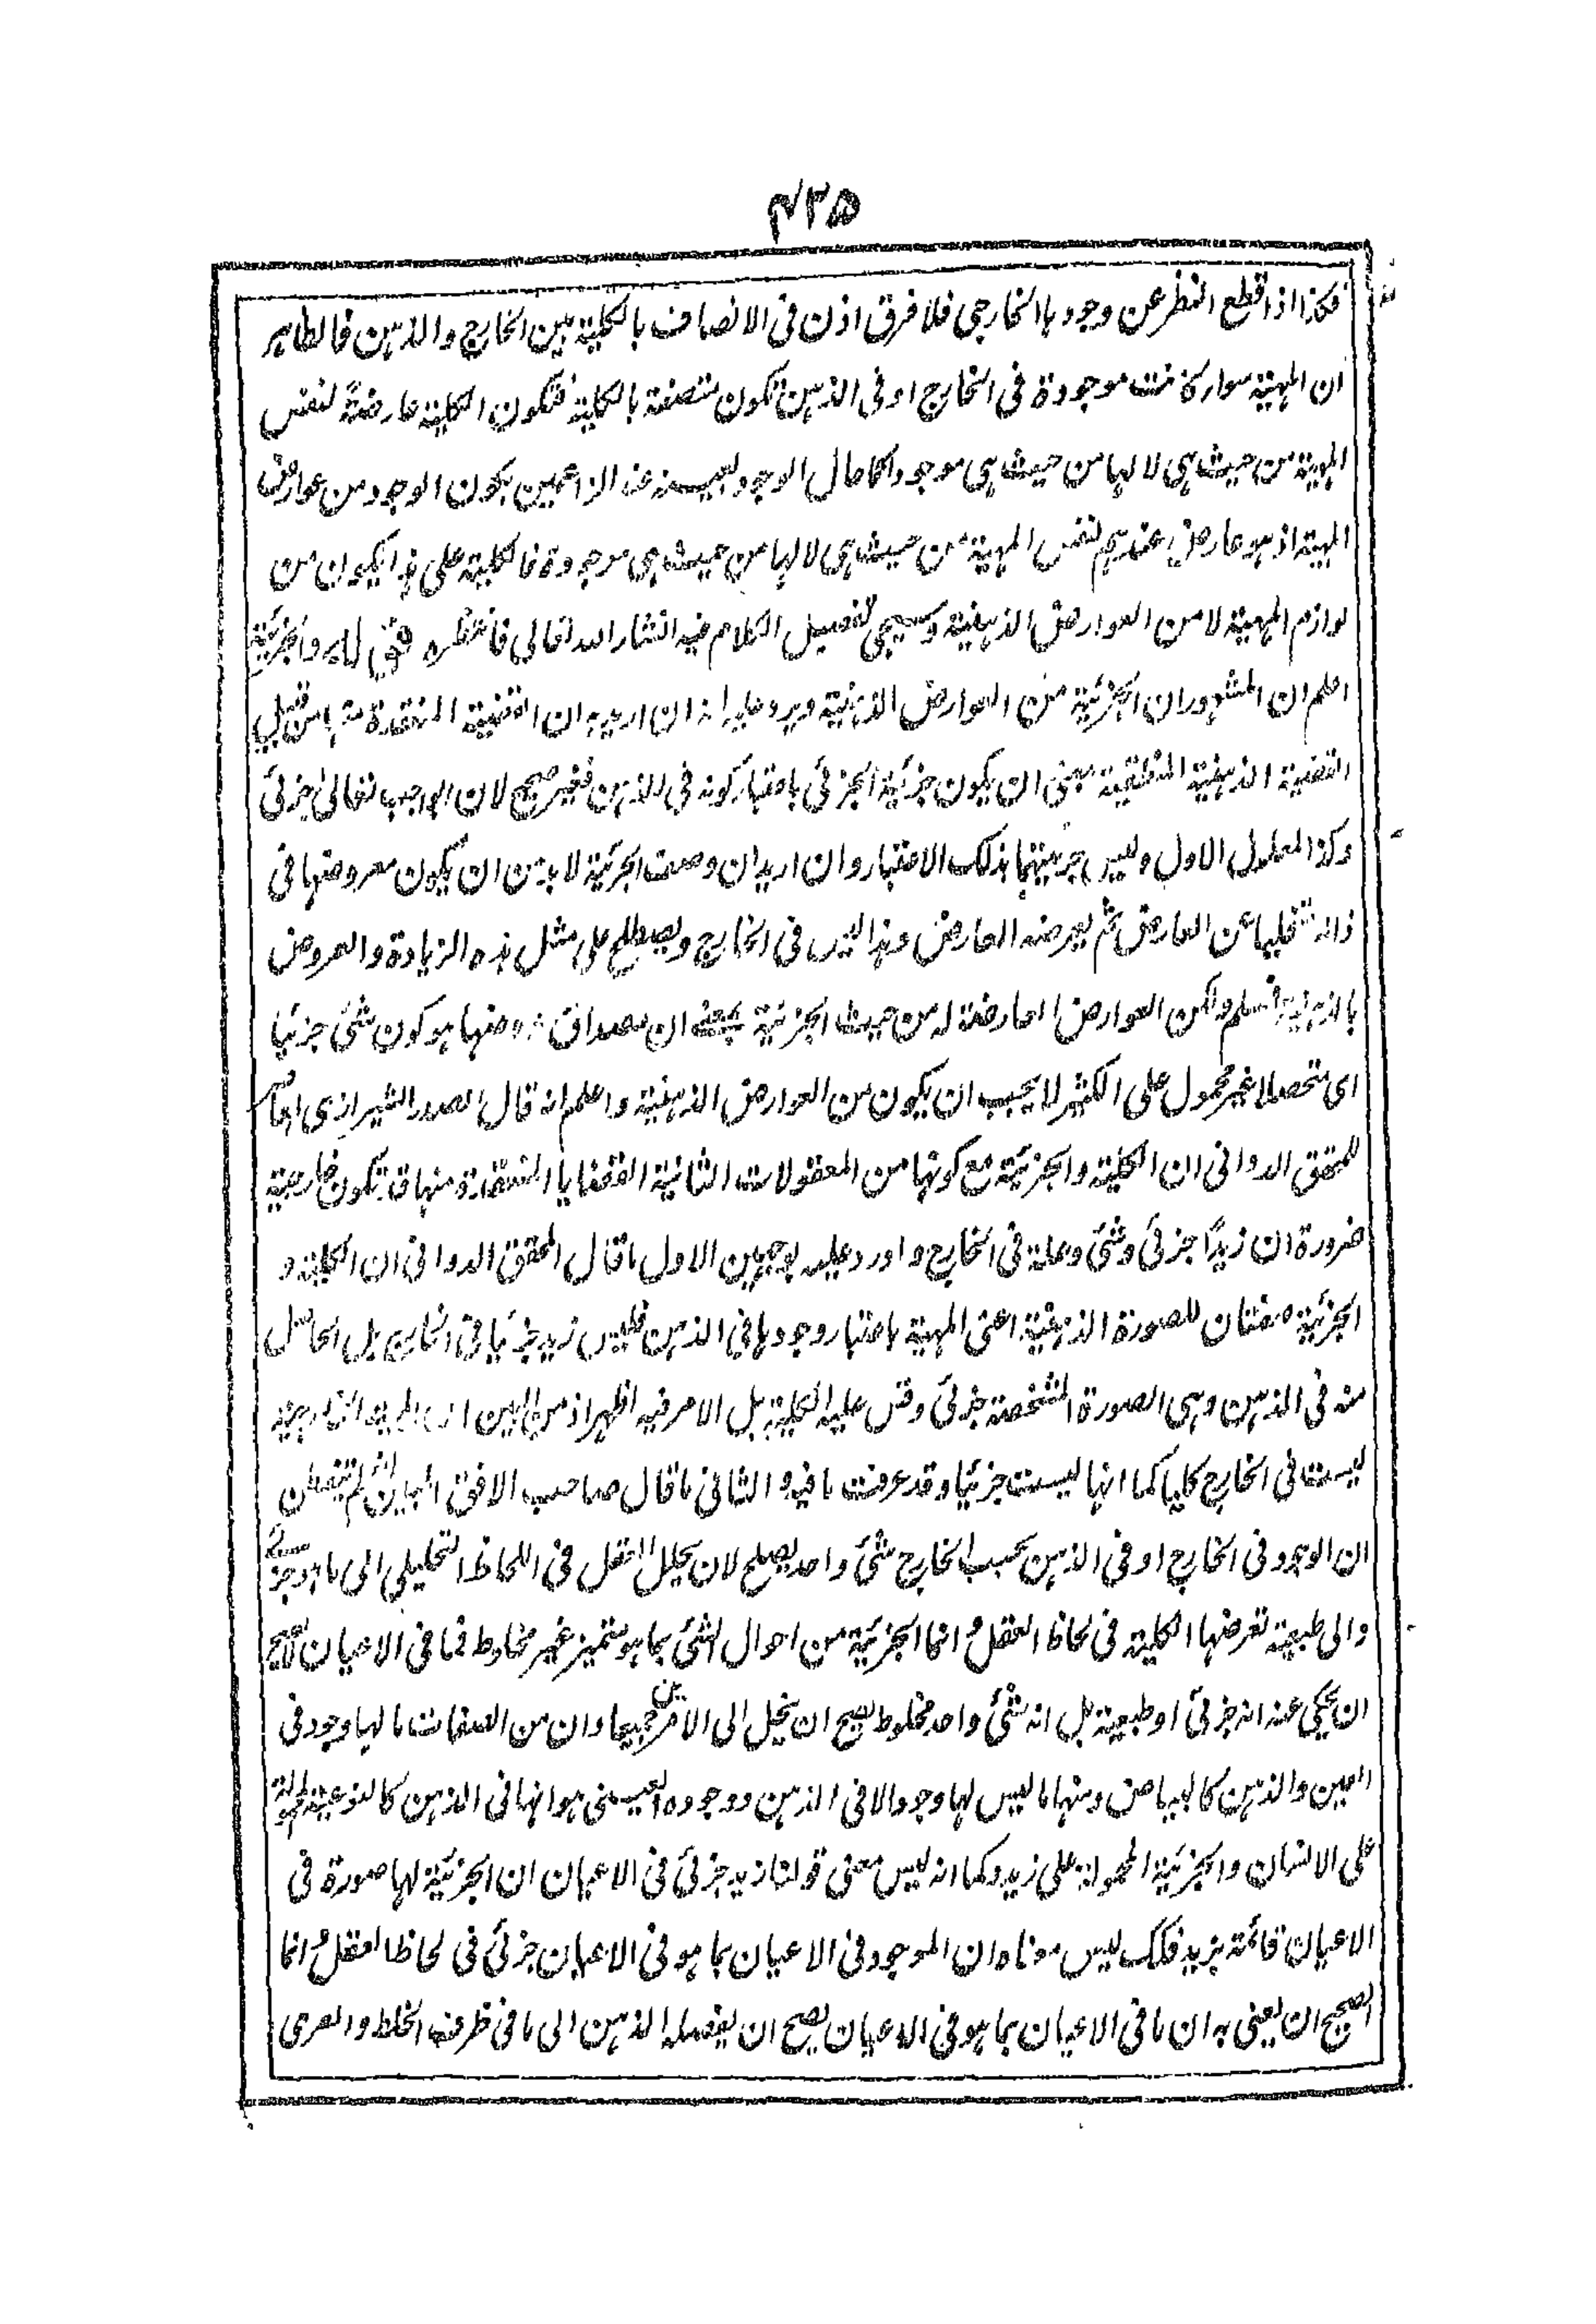 ۴۲۵
فكذا اذا قطع النظر عن وجودها الخارجى فلا فرق اذن فى الاتصاف بالكلية بين الخارج والذهن فالظاهر
ان المهية سواء كانت موجودة فى الخارج او فى الذهن تكون متصفة بالكلية فتكون الكلية عارضةً لنفس
المهية من حيث هى لا لها من حيث هى موجودة كما حال الوجود بعينه عند الزاعمين بكون الوجود من عوارض
المهية اذ هو عارض عندهم لنفس المهية من حيث هى لا لها من حيث هى موجودة فالكلية على هذا يكون من
لوازم المهية لا من العوارض الذهنية وسيجى تفصيل الكلام فيه انشاء الله تعالى فانتظره قوله والجزئية
اعلم ان المشهور ان الجزئية من العوارض الذهنية ويرد عليه انه ان اريد به ان القضية المنعقدة منها من قبيل
القضية الذهنية الحقيقية بمعنى ان يكون جزئية الجزئى باعتبار كونه فى الذهن فغير صحيح لان الواجب تعالى جزئى
وكذا المعلول الاول وليس جزئيتهما بذلك الاعتبار وان اريد ان وصف الجزئية لا بد من ان يكون معروضها فى
ذاته متخليا عن العارض ثم يعرضه العارض وهذا ليس فى الخارج ويصطلح على مثل هذه الزيادة والعروض
بالذهنية فمسلم ولكن العوارض العارضة له من حيث الجزئية بمعنى ان مصداق عروضها هو كون شئ جزئيا
اى متحصلا غير محمول على الكثير لا يجب ان يكون من العوارض الذهنية واعلم انه قال الصدر الشيرازى المعاصر
للمحقق الدوانى ان الكلية والجزئية مع كونها من المعقولات الثانية القضايا المنعقدة منها قد تكون خارجية
ضرورة ان زيدًا جزئى وشئ وعلة فى الخارج واورد عليه بوجهين الاول ما قال المحقق الدوانى ان الكلية و
الجزئية صفتان للصورة الذهنية اعنى المهية باعتبار وجودها فى الذهن فليس زيد جزئيا فى الخارج بل الحاصل
منه فى الذهن وهى الصورة المشخصة جزئى وقس عليه الكلية بل الامر فيه اظهر اذ من البين ان المهية الخارجية
ليست فى الخارج كليا كما انها ليست جزئيا وقد عرفت ما فيه و الثانى ما قال صاحب الافق المبين انه لم يتفطن
ان الوجود فى الخارج او فى الذهن بحسب الخارج شئ واحد يصلح لان يحلل العقل فى اللحاظ التحليلى الى ما هو جزئى
والى طبيعة تعرضها الكلية فى لحاظ العقل و انما الجزئية من احوال الشئ بما هو متميز غير مخلوط فما فى الاعيان لا يصح
ان يحكى عنه انه جزئى او طبيعة بل انه شئ واحد مخلوط يصح ان يحلل الى الامرين جميعا وان من الصفات ما لها وجود فى
العين والذهن كالبياض ومنها ما ليس لها وجود الا فى الذهن ووجوده العينى هو انها فى الذهن كالنوعية المحمولة
على الانسان والجزئية المحمولة على زيد وكما انه ليس معنى قولنا زيد جزئى فى الاعيان ان الجزئية لها صورة فى
الاعيان قائمة بزيد فكك ليس معناه ان الموجود فى الاعيان بما هو فى الاعيان جزئى فى لحاظ العقل و انما
الصحيح ان يعنى به ان ما فى الاعيان بما هو فى الاعيان يصح ان يفصله الذهن الى ما فى ظرف الخلط والعرى